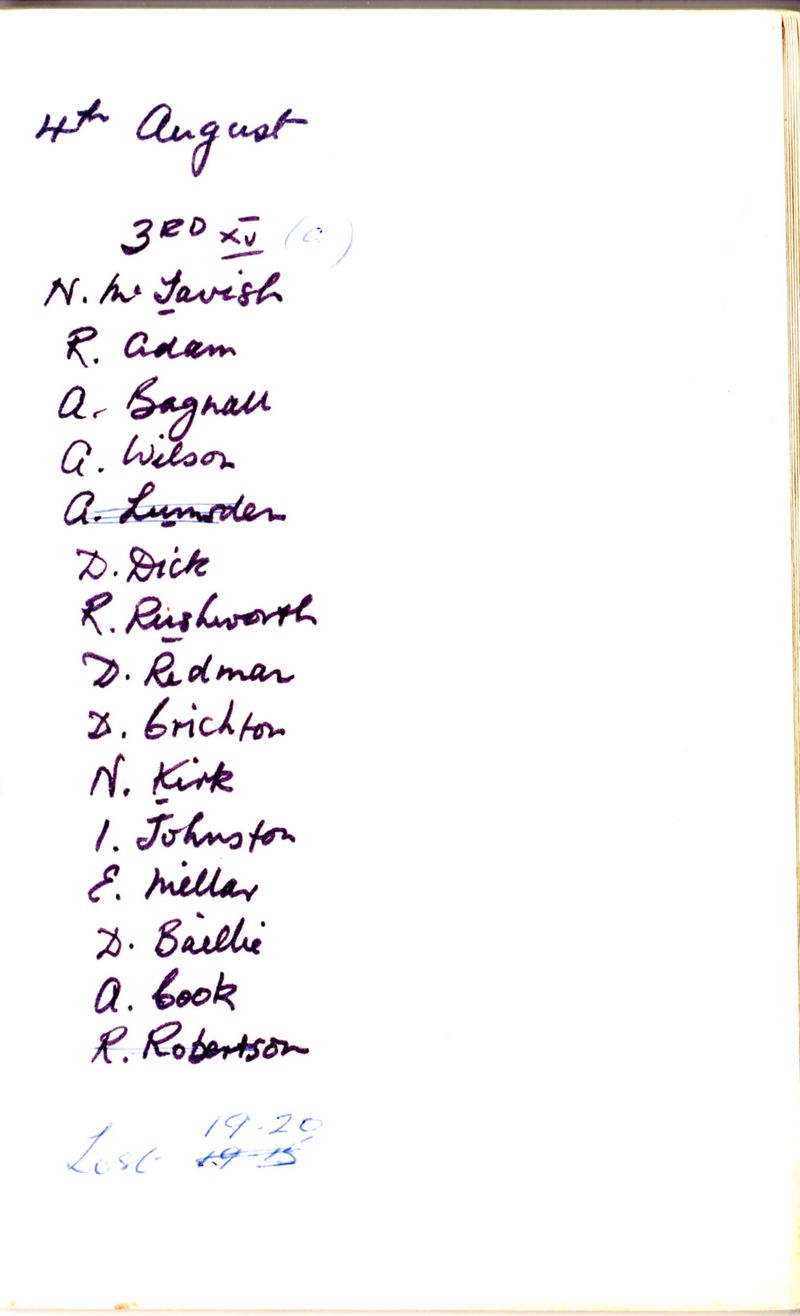 4th August
3RD XV (a)
N. Mc Tavish
R. Adam
A. Bagnall
A. Wilson
A. Lumsden
D. Dick
R. Rushworth
D. Redman
D. Crichton
N. Kirk
I. Johnston
E. Millar
D. Baillie
A. Cook
R. Robertson
19-20
Lost 19-15